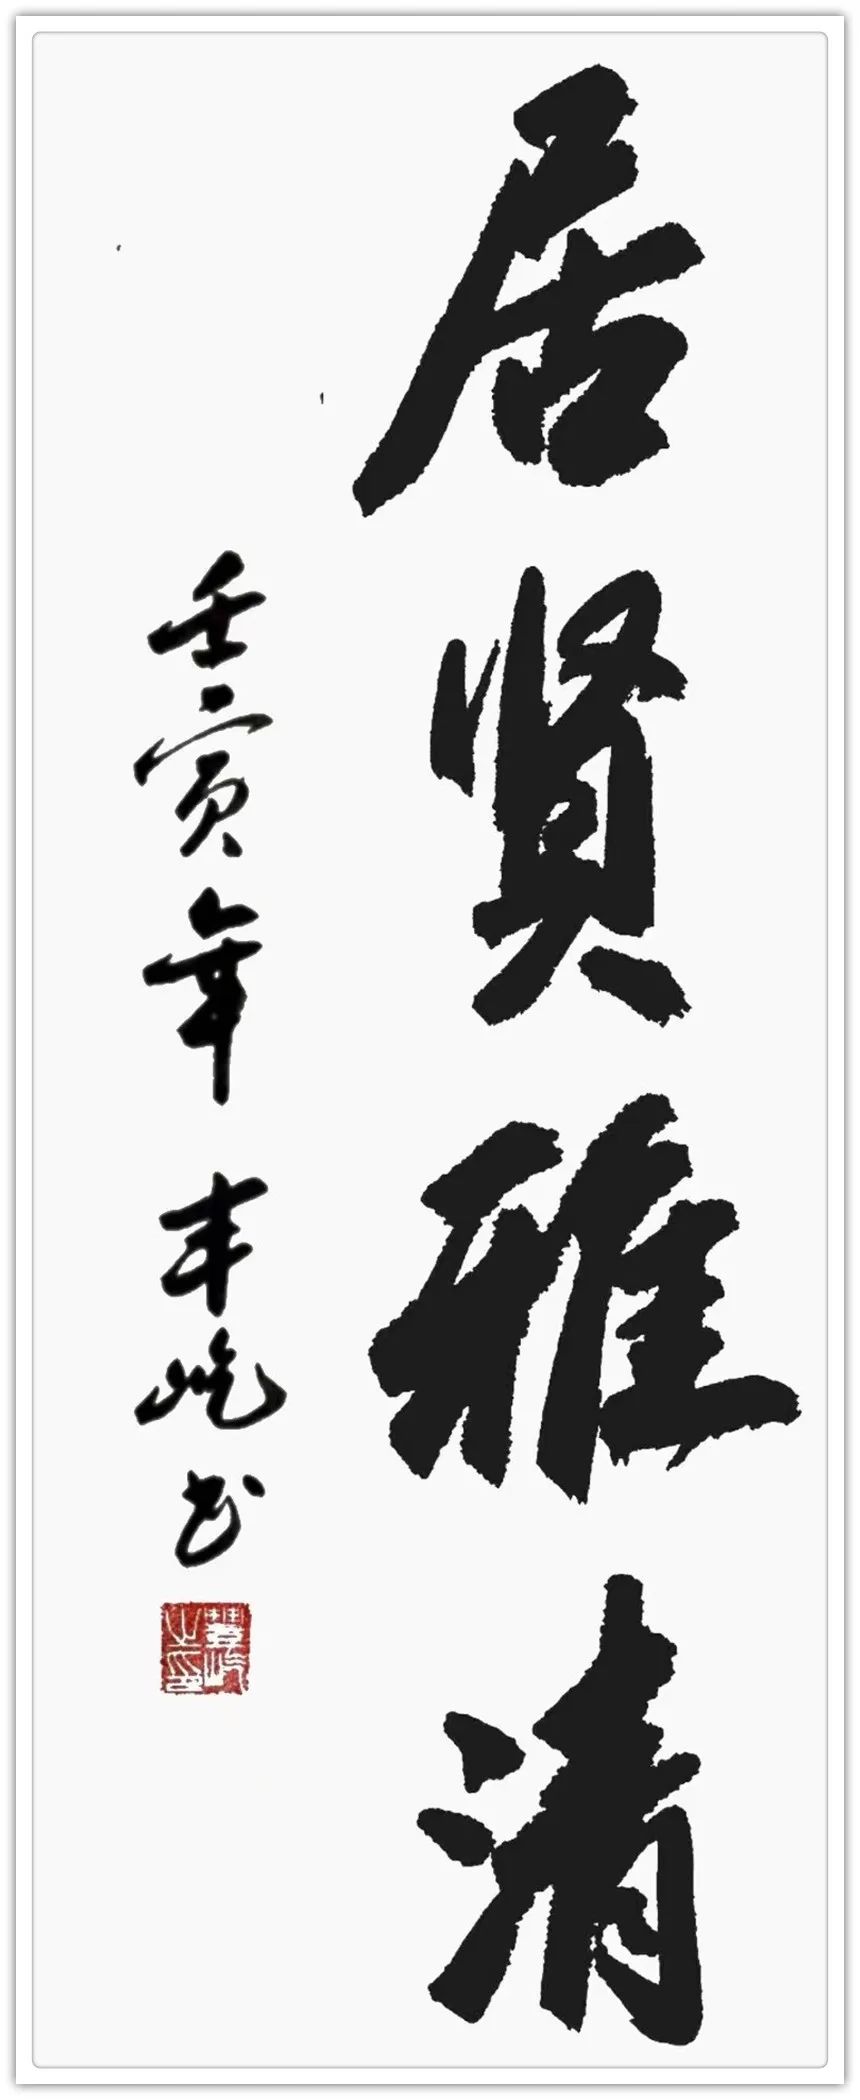 居贤雅清
壬寅年 丰屹书